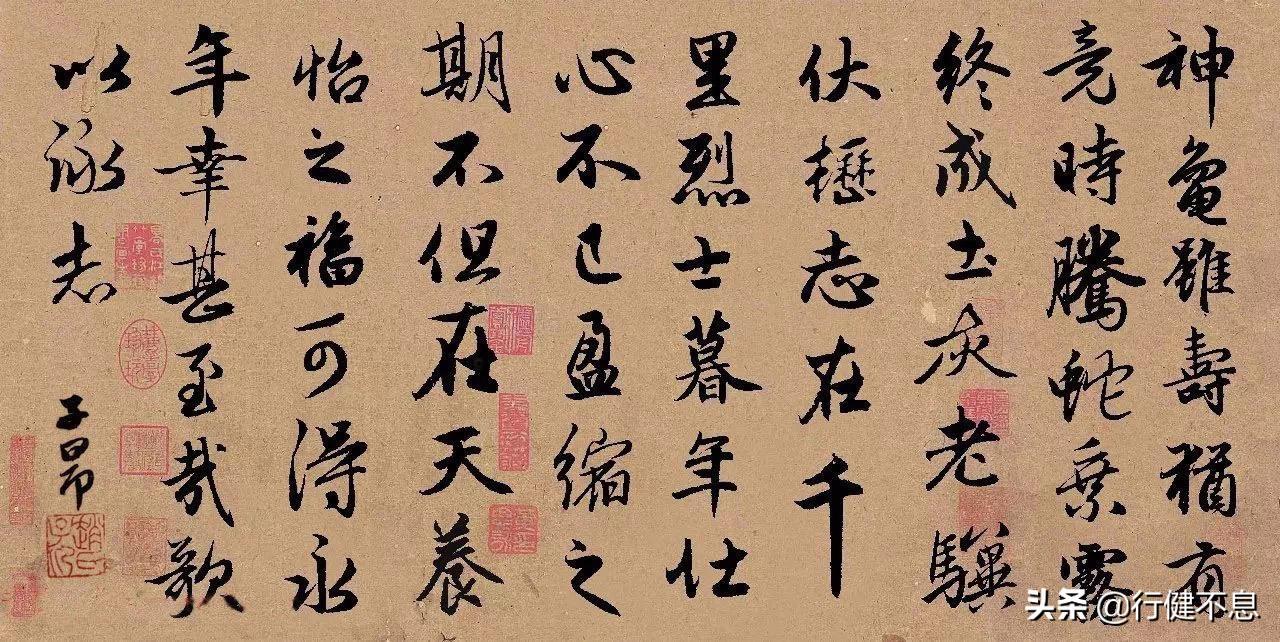 神龜雖壽猶有
竟時騰蛇乘霧
終成土灰老驥
伏櫪志在千
里烈士暮年壯
心不已盈縮之
期不但在天養
怡之福可得永
年幸甚至哉歌
以詠志
子昂
头条@行健不息